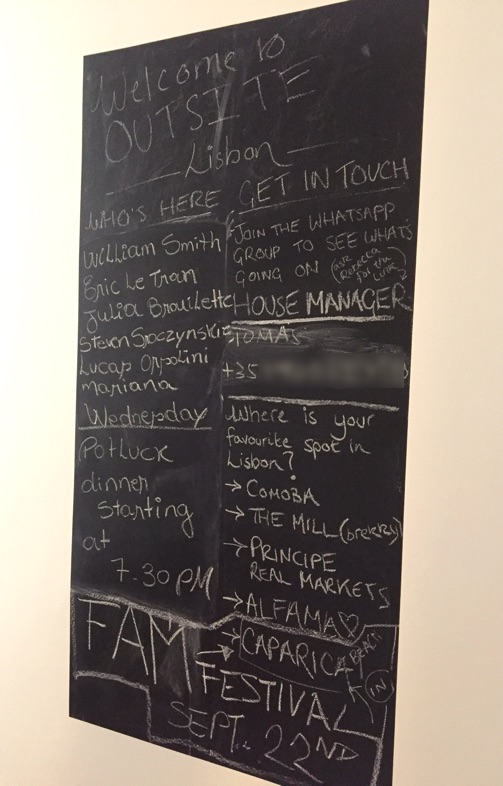 Welcome to
OUTSITE
Lisbon
WHO'S HERE
William Smith
Eric Le Tran
Julia Brouilette
Steven Sroczynski
Lucap Orpolini
Mariana
Wednesday
Potluck
dinner
Starting
at
7.30 PM
GET IN TOUCH
JOIN THE WHATSAPP
GROUP TO SEE WHAT'S
GOING ON
(ask
Rebecca
for the
Link)
HOUSE MANAGER
TOMAS
+35
Where is your
favourite spot in
Lisbon?
→ COMOBA
→ THE MILL (brekky)
→ PRINCIPE
REAL MARKETS
→ ALFAMA ♡
→ CAPARICA BEACH
IN
FAM
FESTIVAL
SEPT. 22ND